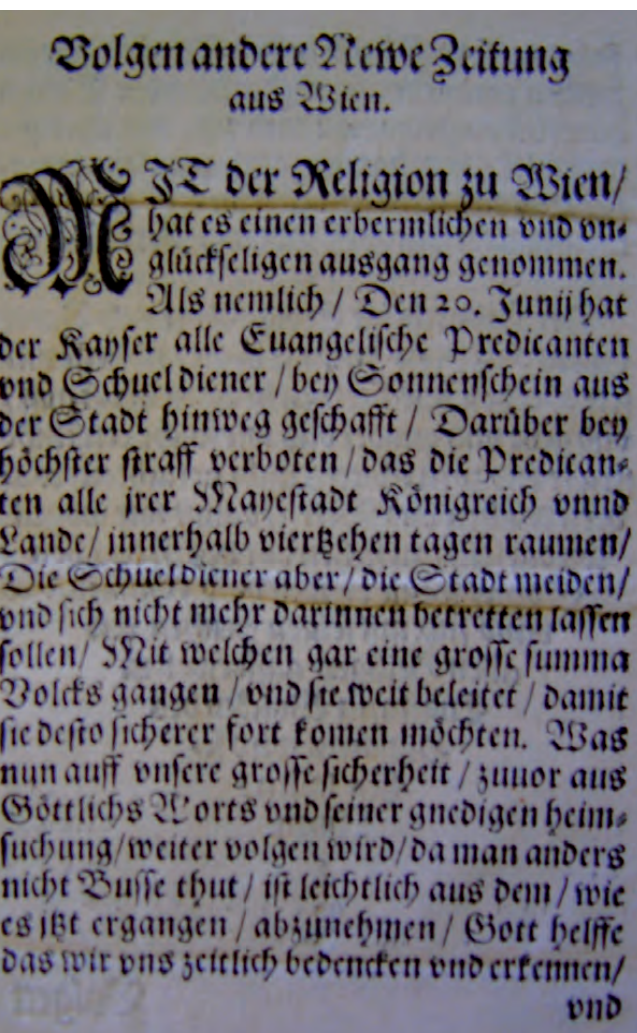 Volgen andere Newe Zeitung
aus Wien.
MIT der Religion zu Wien/
hat es einen erbermlichen vnd vn⸗
glückseligen ausgang genommen.
Als nemlich / Den 20. Junij hat
der Kayser alle Euangelische Predicanten
vnd Schueldiener / bey Sonnenschein aus
der Stadt hinweg geschafft / Darüber bey
höchster straff verboten / das die Predican⸗
ten alle jrer Mayestadt Königreich vnnd
Lande / innerhalb viertzehen tagen raumen/
Die Schueldiener aber / die Stadt meiden/
vnd sich nicht mehr darinnen betretten lassen
sollen/ Mit welchen gar eine grosse summa
Volcks gangen / vnd sie weit beleitet / damit
sie desto sicherer fort komen möchten. Was
nun auff vnsere grosse sicherheit / zuuor aus
Göttlichs Worts vnd seiner gnedigen heim⸗
suchung/weiter volgen wird/da man anders
nicht Busse thut / ist leichtlich aus dem / wie
es itzt ergangen / abzunehmen / Gott helffe
das wir vns zeitlich bedencken vnd erkennen/
vnd